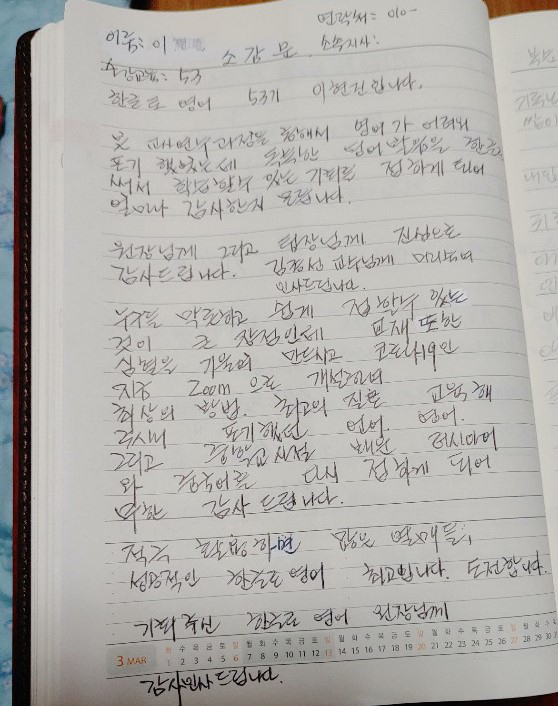 이름: 이
연락처: 010-
소감문
소속지사:
수강교육: 53
한글로 영어 53기 이현진입니다.
못 교사연수과정을 통해서 영어가 어려워
포기 했었는데 독특한 영어학습을 한글
써서 학습할수 있는 기회를 접하게 되어
얼마나 감사한지 모릅니다.
원장님께 그리고 팀장님께 진심으로
감사드립니다. 김종선 교수님께 머리숙여
인사드립니다.
누구를 막론하고 쉽게 접할수 있는
것이 큰 장점인데 교재 또한
심혈을 기울여 만드시고 코로나19인
지금 Zoom 으로 개설하여
최상의 방법. 최고의 질로 교육해
주시니 포기했던 언어. 영어.
그리고 중학교시절 배운 러시아어
와 중국어를 다시 접하게 되어
무한 감사 드립니다.
적극 활용하면 많은 열매들,
성공적인 한글로영어 최고입니다. 도전합니다.
기회주신 한글로 영어 원장님께
3 MAR
화 수 목 금 토 일 월 화 수 목 금 토 일 월 화 수 목 금 토 일 월 화 수 목 금 토 일 월 화
1 2 3 4 5 6 7 8 9 10 11 12 13 14 15 16 17 18 19 20 21 22 23 24 25 26 27 28 29
감사인사드립니다.